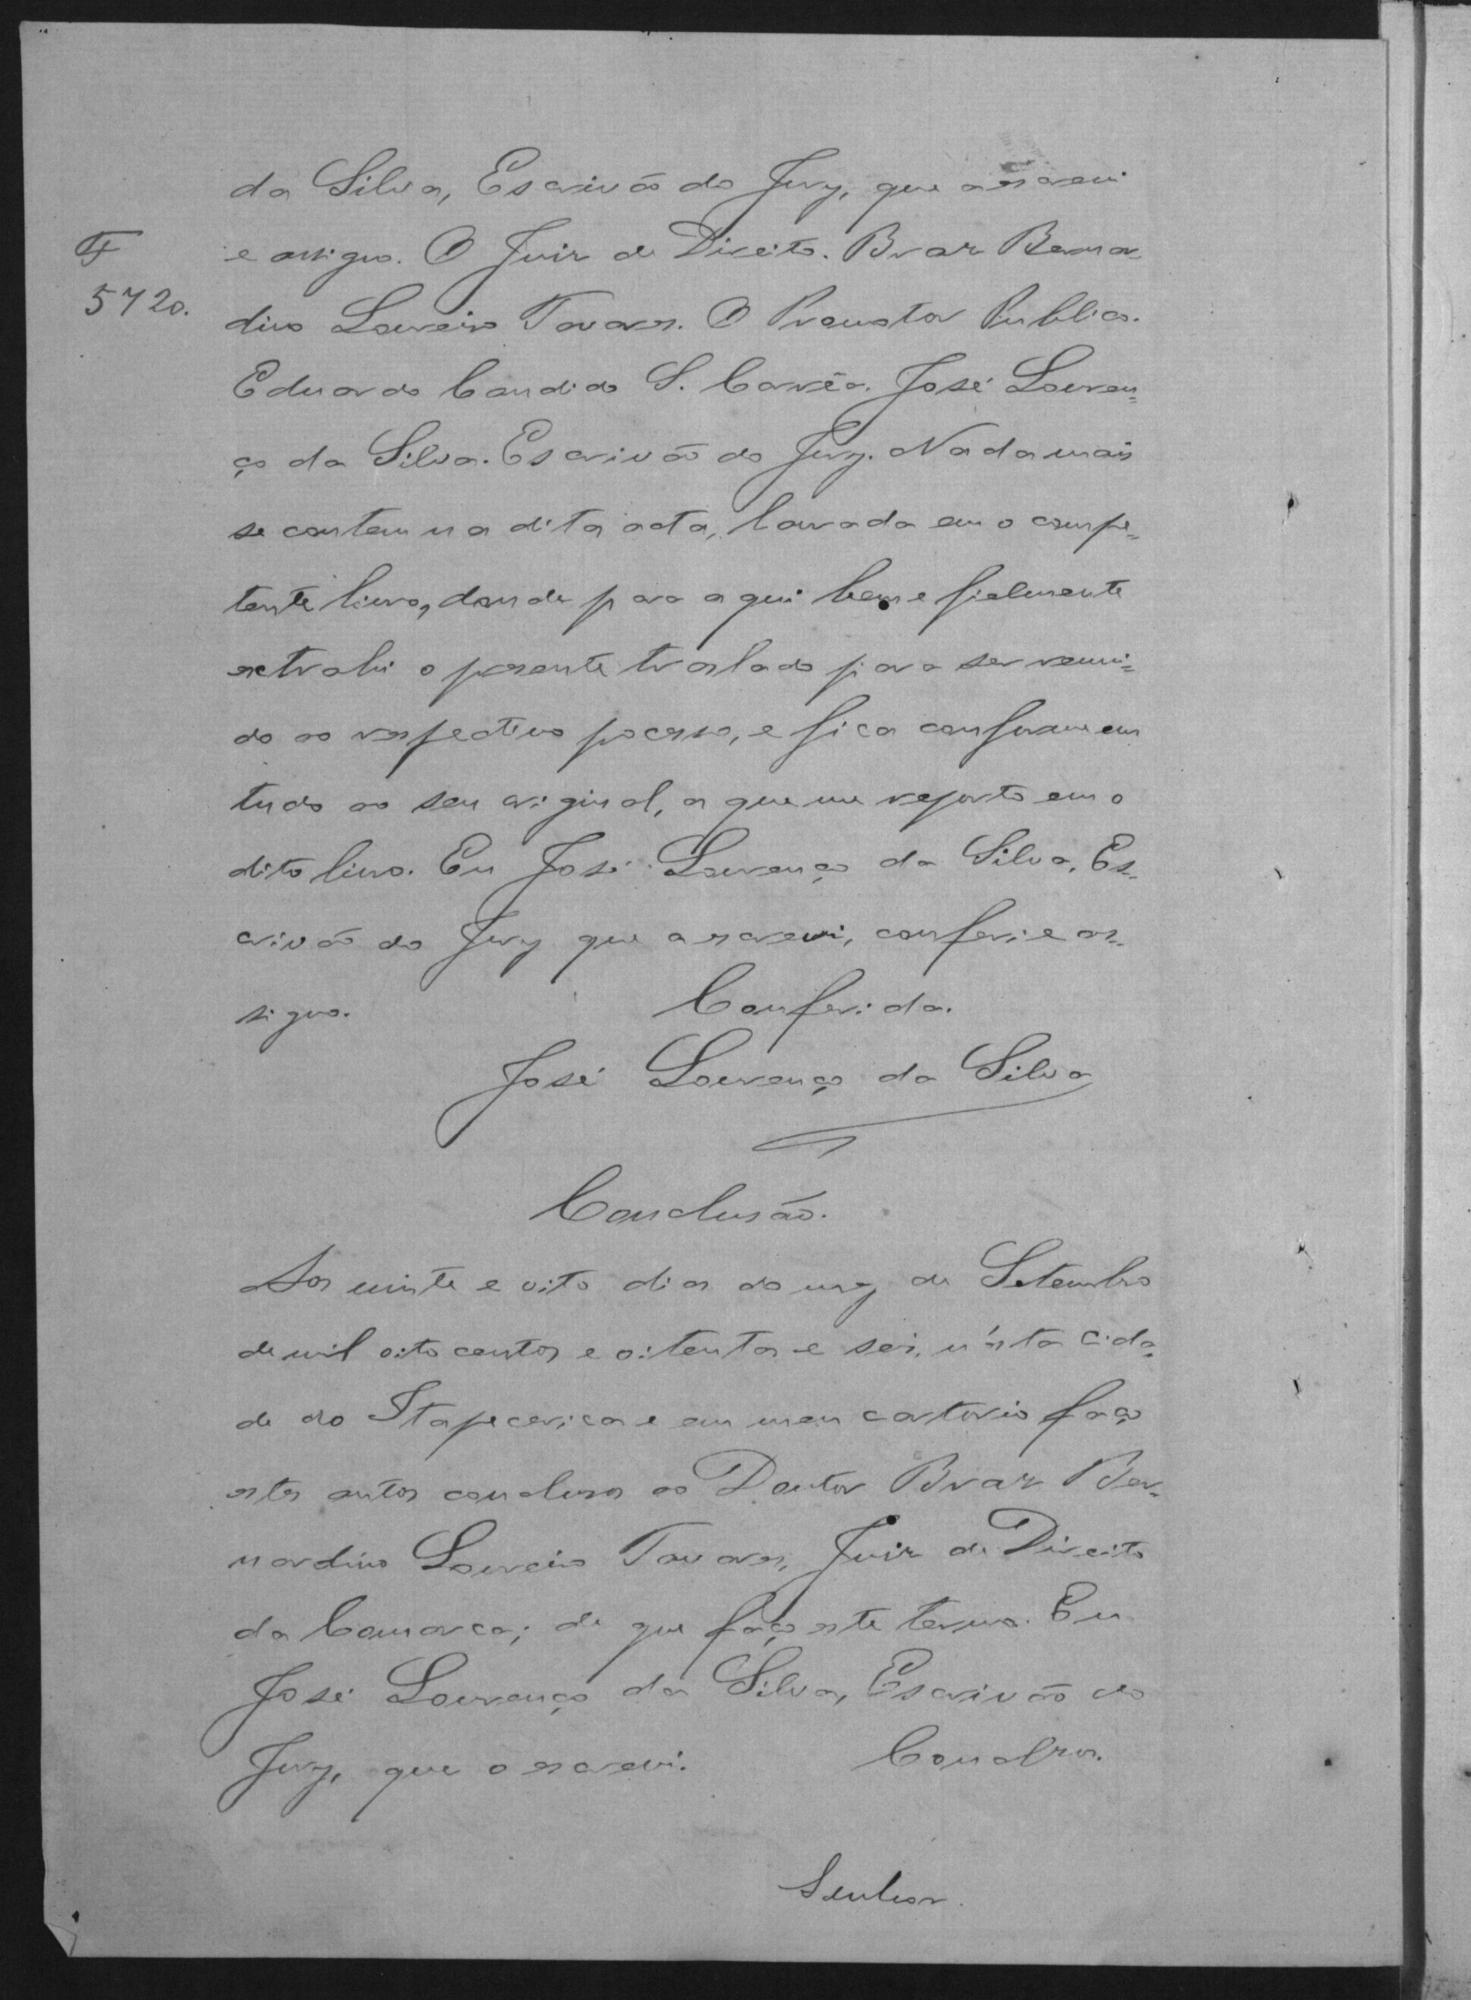 da Silva, Escrivão do Jury, que a escrevi
F
5720.
e assigno. O Juiz de Direito. Braz Bernar
dino Loureiro Tavares. O Promotor Publico.
Eduardo Candido S. Corrêa. José Louren=
ço da Silva. Escrivão do Jury. Nada mais
se contem na dita acta, lavrada em o compe=
tente livro, donde para aqui bem e fielmente
extrahi o presente traslado para ser reuni=
do ao respectivo processo, e fica conforme em
tudo ao seu original, a que me reporto em o
dito livro. Eu José Lourenço da Silva, Es=
crivão do Jury que a escrevi, conferi e as=
signo. Conferida.
José Lourenço da Silva
Conclusão.
Aos vinte e oito dias do mez de Setembro
de mil oito centos e oitenta e seis, n'esta Cida=
de do Itapecerica e em meu cartorio faço
estes autos conclusos ao Doutor Braz Ber=
nardino Loureiro Tavares, Juiz de Direito
da Comarca; de que faço este termo. Eu
José Lourenço da Silva, Escrivão do
Jury, que o escrevi. Conclsos.
Senhor.